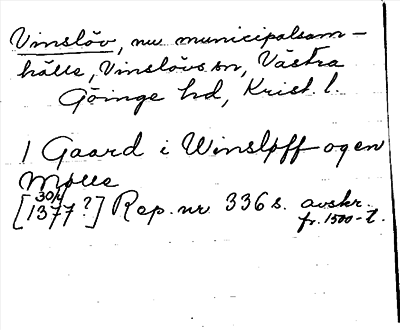 Vinslöv, nu municipalsam-
hälle, Vinslövs sn, Västra
Göinge hd, Krist. l.
1 Gaard i Winsløff og en
Mølle
30/4
[1377?] Rep. nr 336 s. avskr.
fr. 1500-t.